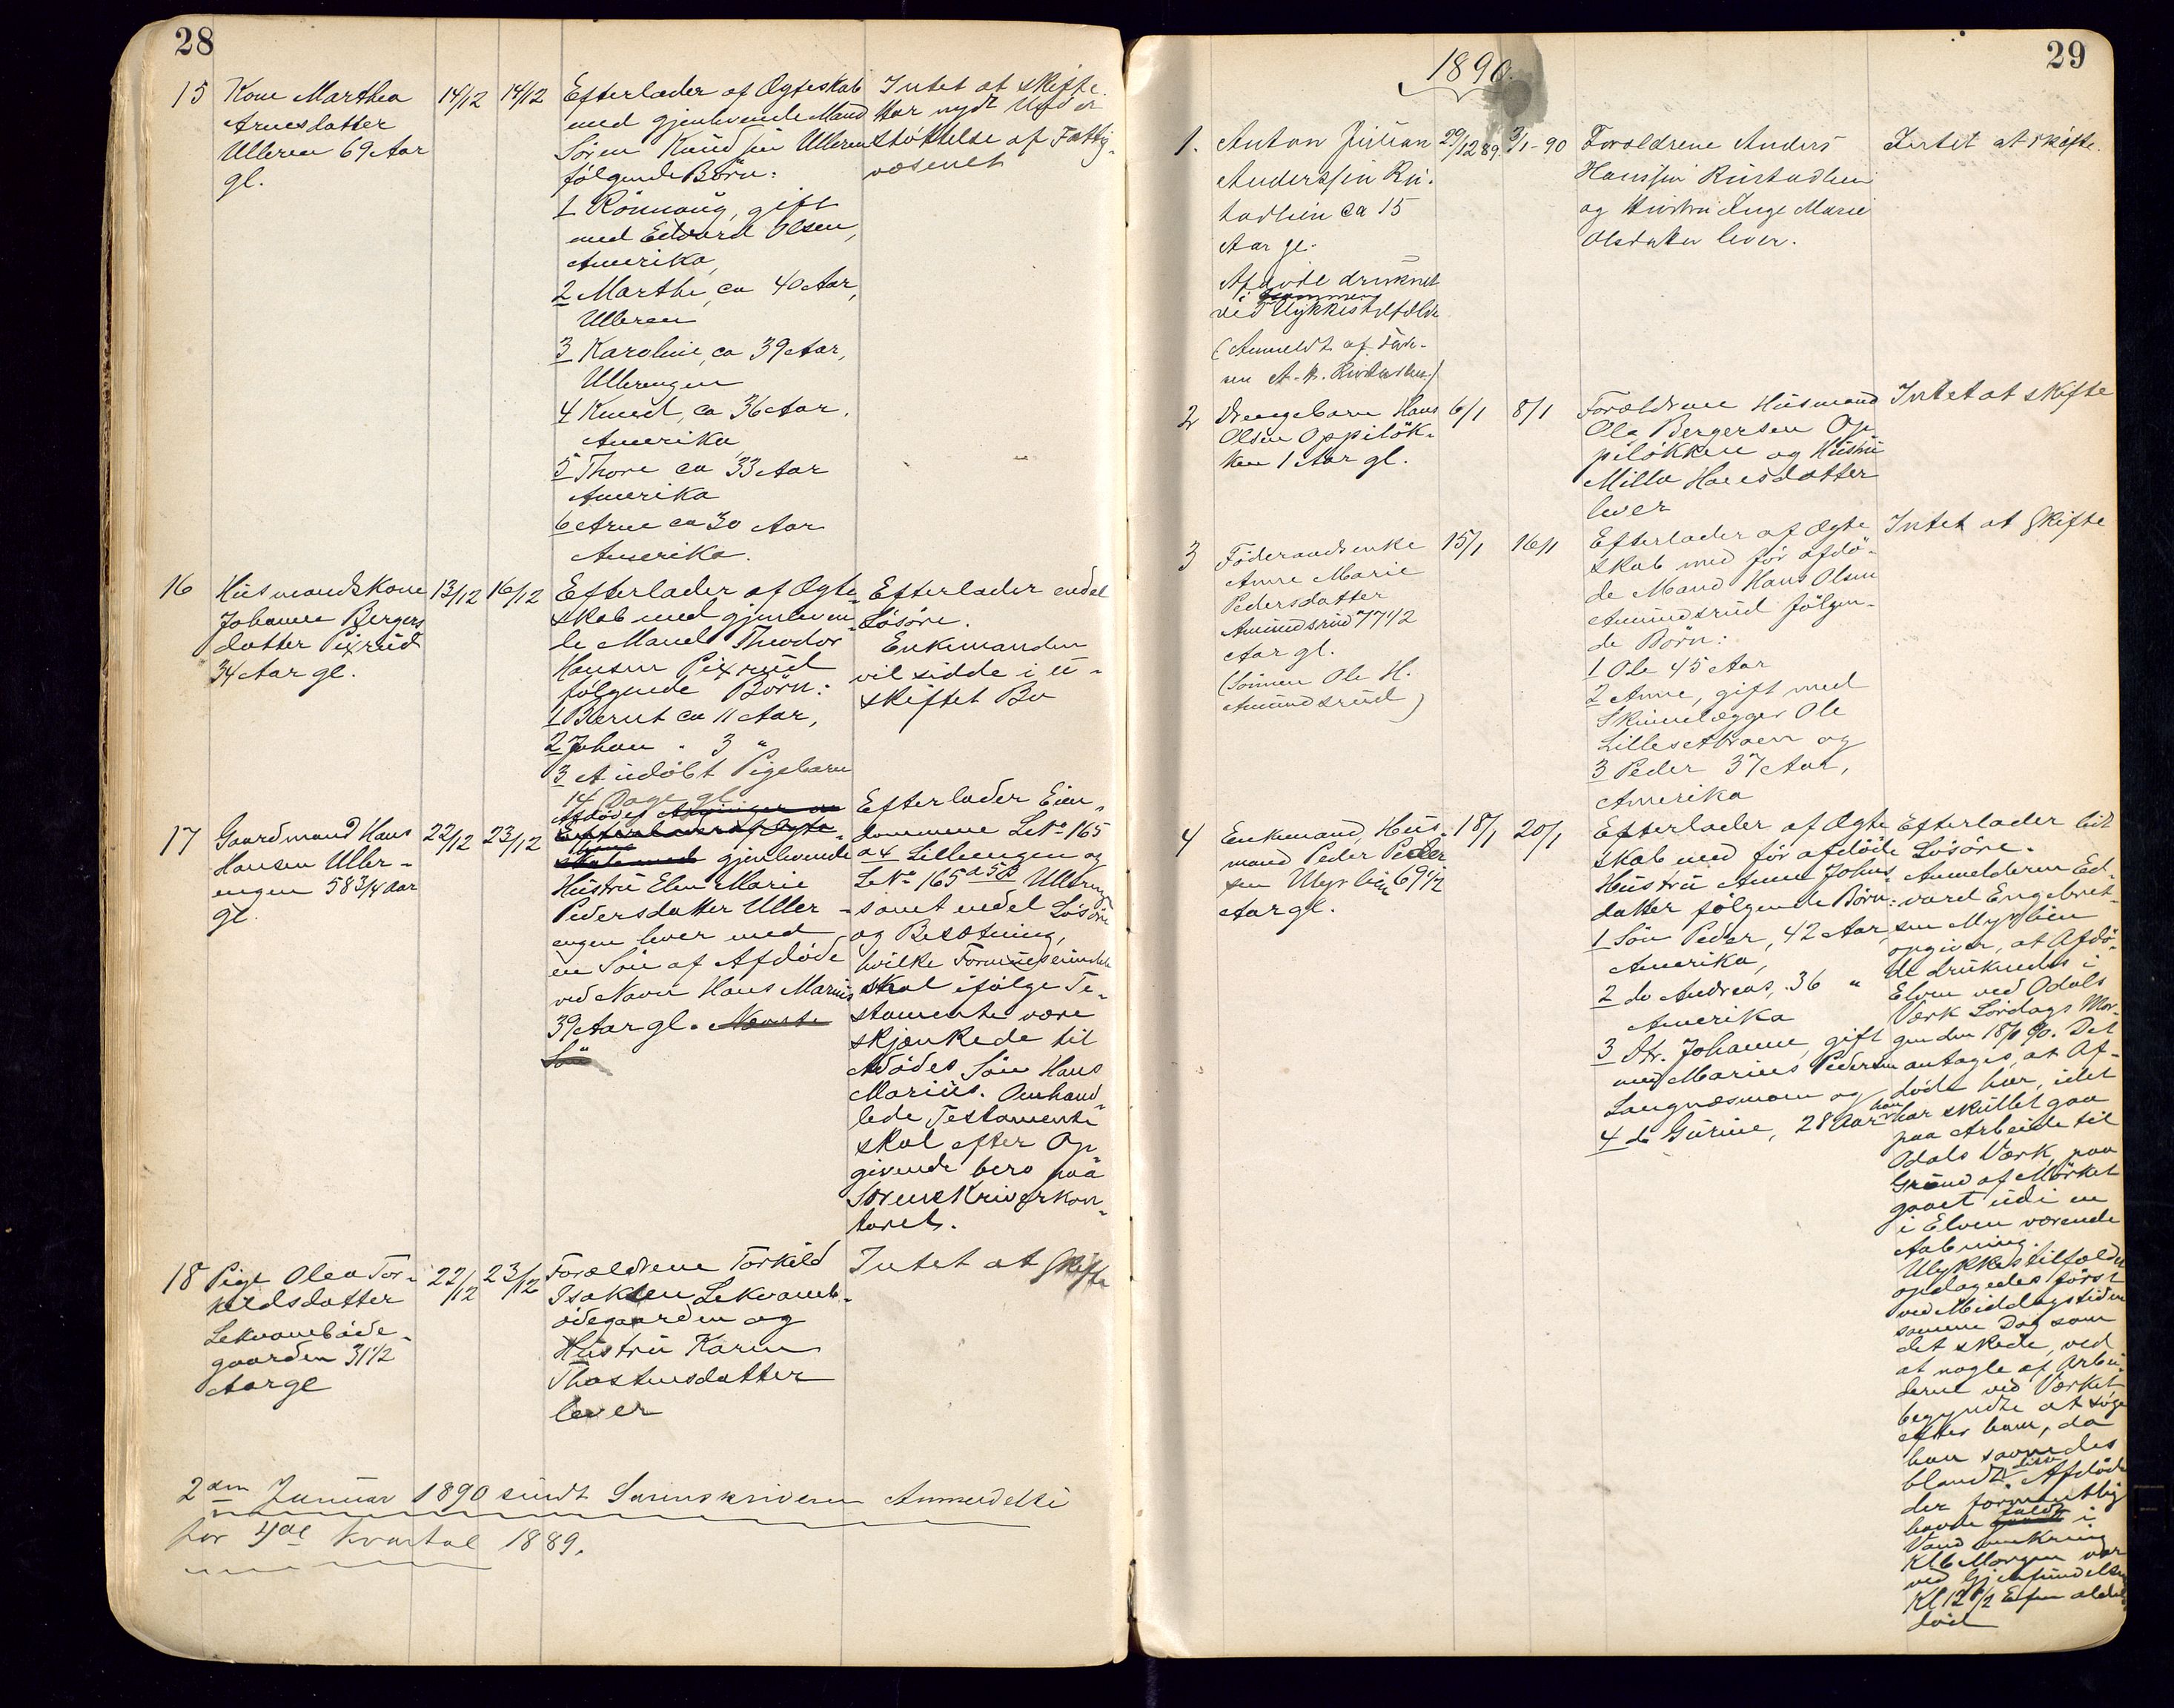 28
15 Kone Marthea
Arnesdatter
Ulleren 69 Aar
gl.
14/12
14/12
Efterlader af Ægteskab
med gjenlevende Mand
Sören Knudsen Ulleren
følgende Børn:
1 Rönnaug, gift
med Edvard Olsen,
Amerika,
2 Marthe, ca 40 Aar,
Ulleren
3 Karoline, ca 39 Aar,
Ullerengen
4 Knud, ca 36 Aar,
Amerika
5 Thore ca 33 Aar
Amerika
6 Arne ca 30 Aar
Amerika.
Intet at skifte.
Har nydt Under
støttelse af Fattig-
væsenet
16 Husmandskone
Johanne Bergers
datter Pixrud
34 Aar gl.
13/12
16/12
Efterlader af Ægte-
skab med gjenleven-
de Mand Theodor
Hansen Pixrud
følgende Børn:
1 Bernt ca 11 Aar,
2 Johan " 3 "
3 et udøbt Pigebarn
14 Dage gl.
Efterlader endel
Løsøre.
Enkemanden
vil sidde i u-
skiftet Bo
17 Gaardmand Hans
Hansen Uller-
engen 58 3/4 Aar
gl.
22/12
23/12
Afdødes
Efterlader af Ægte-
skab med gjenlevende
Hustru Elen Marie
Pedersdatter Uller-
engen lever med
en Sön af Afdøde
ved Navn Hans Marius
39 Aar gl. Nævnte
Sön
Efterlader Eien-
dommene L.No 165
a 4 Lillengen og
L.No 165 a 5B Ullereng
samt endel Løsøre
og Besætning,
hvilke Formuesgjenstande
skal ifølge Te-
stamente være
skjænkede til
Afdødes Sön Hans
Marius. Omhand-
lede Testamente
skal efter Op
givende bero paa
Sorenskriverkon-
toret.
18 Pige Olea Tor-
kildsdatter
Lekvamböde-
gaarden 31 1/2
Aar gl
22/12
23/12
Forældrene Torkild
Isaksen Lekvamb-
ödegaarden og
Hustru Karen
Thostensdatter
lever
Intet at skifte
2den Januar 1890 sendt Sorenskriveren Anmeldelse
for 4de Kvartal 1889.
29
1890.
1. Anton Julian
Anderssen Ru-
stadhien ca 15
Aar gl.
Afdøde druknet
ved Ulykkestilfælde
(Anmeldt af Fade-
ren A. H. Rustadhien)
29/12 89.
3/1-90
Forældrene Anders
Hanssen Rustadhien
og Hustru Inge Marie
Olsdatter lever.
Intet at skifte.
2 Drengebarn Hans
Olsen Oppilök-
ken 1 Aar gl.
6/1
8/1
Forældrene Husmand
Ole Bergersen Op
pilökken og Hustru
Milla Hansdatter
lever
Intet at skifte
3 Föderaadsenke
Anne Marie
Pedersdatter
Amundsrud 77 1/2
Aar gl.
(Sönnen Ole H.
Amundsrud)
15/1
16/1
Efterlader af Ægte
skab med før afdø-
de Mand Hans Olsen
Amundsrud følgen-
de Börn:
1 Ole 45 Aar
2 Anne, gift med
Skinnelægger Ole
Lillesætbraaten og
3 Peder 37 Aar,
Amerika
Intet at skifte
4 Enkemand, Hus-
mand Peder Peder
sen Myrlien 69 1/2
Aar gl.
18/1
20/1
Efterlader af Ægte
skab med før afdøde
Hustru Anne Johns-
datter følgende Börn:
1 Sön Peder, 42 Aar,
Amerika,
2 do Andreas, 36 "
Amerika
3 Dtr. Johanne, gift
med Marius Pedersen
Langnæsmoen og
4 do Gurine, 28 Aar
Efterlader lidt
Løsøre.
Anmelderen Ed-
vard Engebret-
sen Myrlien
opgiver, at Afdø-
de druknedes i
Elven ved Odals
Værk Lördags Mor-
gen den 18/1 90. Det
antages, at Af-
døde har, idet
han har skullet gaa
paa Arbeide til
Odals Værk, paa
Grund af Mørket
gaaet ud i en
i Elven værende
Aabning.
Ulykkestilfældet
opdagedes først
ved Middagstiden
samme Dag som
det skede, ved
at nogle af Arbei-
derne ved Værket
begyndte at søge
efter ham, da
han savnedes
blandt disse. Afdøde
der formentlig
havde faldt i
Vand omkring
Kl 6 Morgen var
ved Gjenfindelsen
Kl 12 1/2 Efm aldeles
död